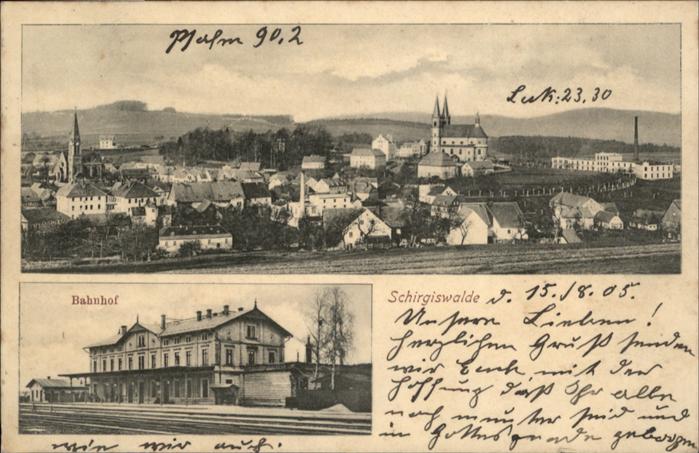 Psalm 90.2
Luk: 23.30
Bahnhof
Schirgiswalde d. 15./8. 05.
Unsere Lieben!
herzlichen Gruß senden
wir Euch mit der
Hoffung daß Ihr alle
noch munter seid und
in Gottesgnade geborgen
wie wir auch.